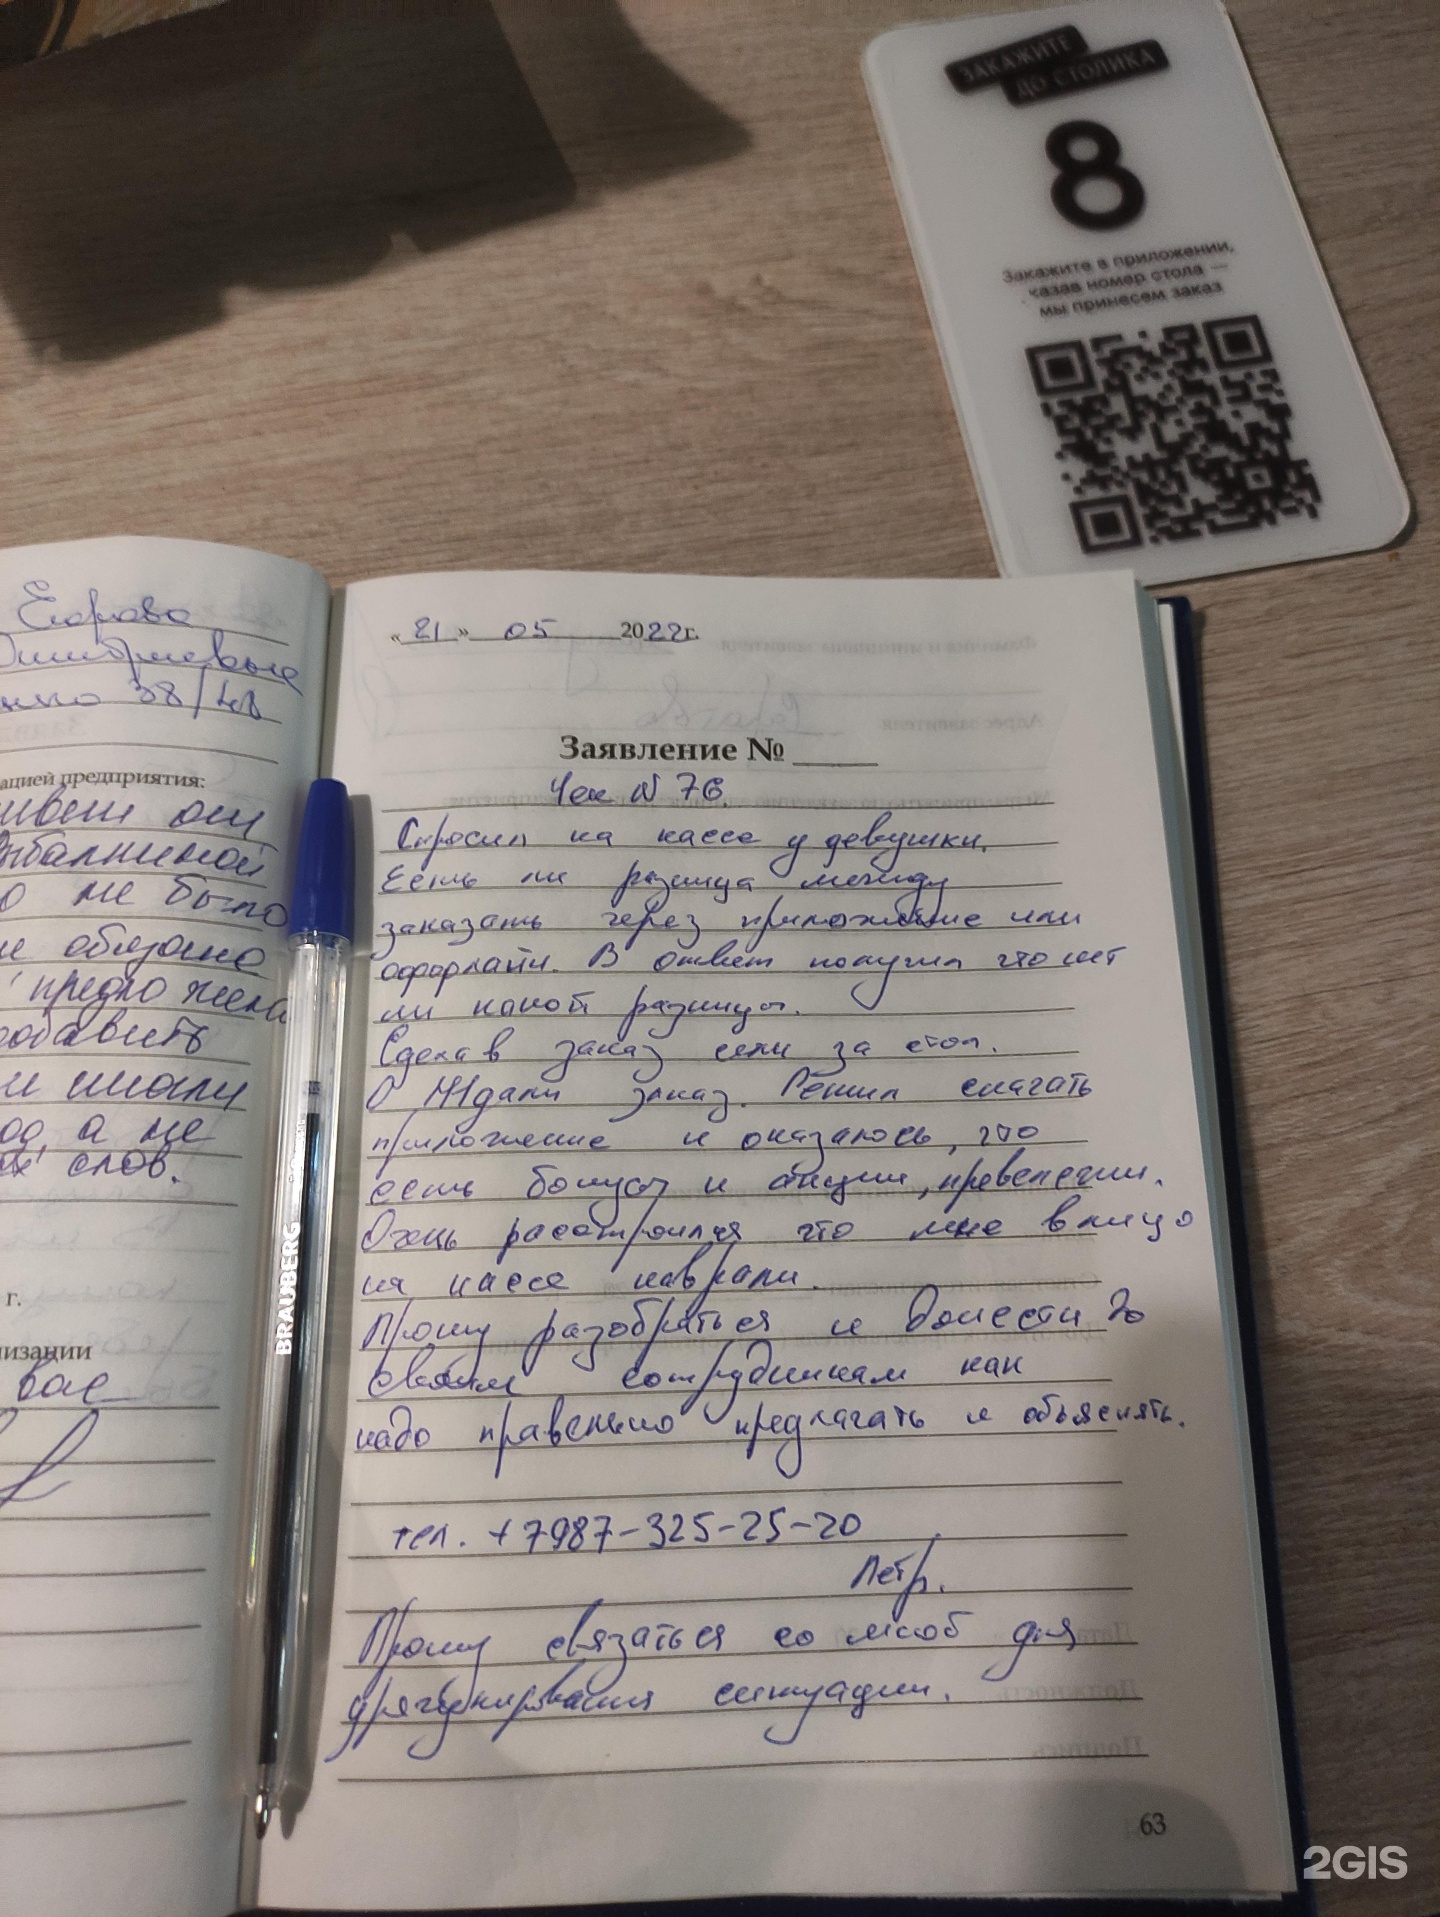 ЗАКАЖИТЕ
ДО СТОЛИКА
8
Закажите в приложении,
казав номер стола —
мы принесем заказ
Егорова
38/48
ацией предприятия:
о не было
и обязано
предложена
обавить
и
од, а не
слов.
г.
низации
вас
BRAUBERG
« 21 » 05 2022 г.
Заявление №
Чек N 76.
Спросил на кассе у девушки.
Есть ли разница между
заказать через приложение или
оффлайн. В ответ получил что нет
ли какой разницы.
Сделав заказ сели за стол.
Ожидали заказ. Решил скачать
приложение и оказалось, что
есть бонусы и акции, превелегии.
Очень расстроился что мне в лицо
на кассе наврали.
Прошу разобраться и донести до
своим сотрудникам как
надо правельно предлагать и объяснять.
тел. +7987-325-25-20
Петр.
Прошу связаться со мной для
урегулирования ситуации.
63
2GIS